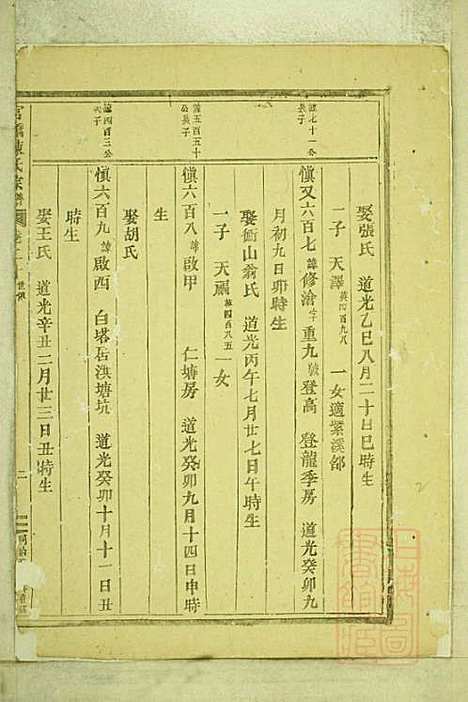 娶張氏　道光乙巳八月二十日巳時生
一子　天澤英四百九八　一女適紫溪邵
謹七十一公長子
慎又六百七諱修滄字重九號登高　登龍季房　道光癸卯九
月初九日卯時生
娶衙山翁氏　道光丙午七月廿七日午時生
一子　天爵英四百八五　一女
謹五百五十公長子
慎六百八諱啟甲　仁塘房　道光癸卯九月十四日申時
生
娶胡氏
謹四百三公
慎六百九諱啟西　白塔居洪塘坑　道光癸卯十月十一日丑
時生
娶王氏　道光辛丑二月廿三日丑時生
陳氏宗譜